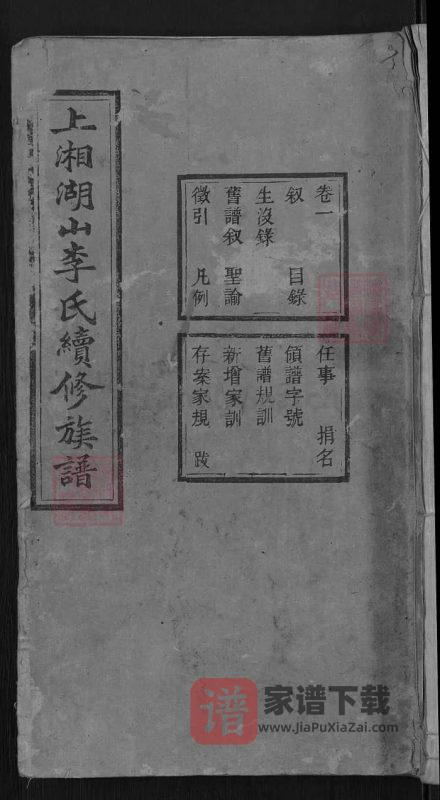 上湘湖山李氏續修族譜
卷一
叙 目錄
生沒錄
舊譜叙 聖諭
徵引 凡例
任事 捐名
領譜字號
舊譜規訓
新增家訓
存案家規 跋
谱 家谱下载
www.JiaPuXiaZai.com